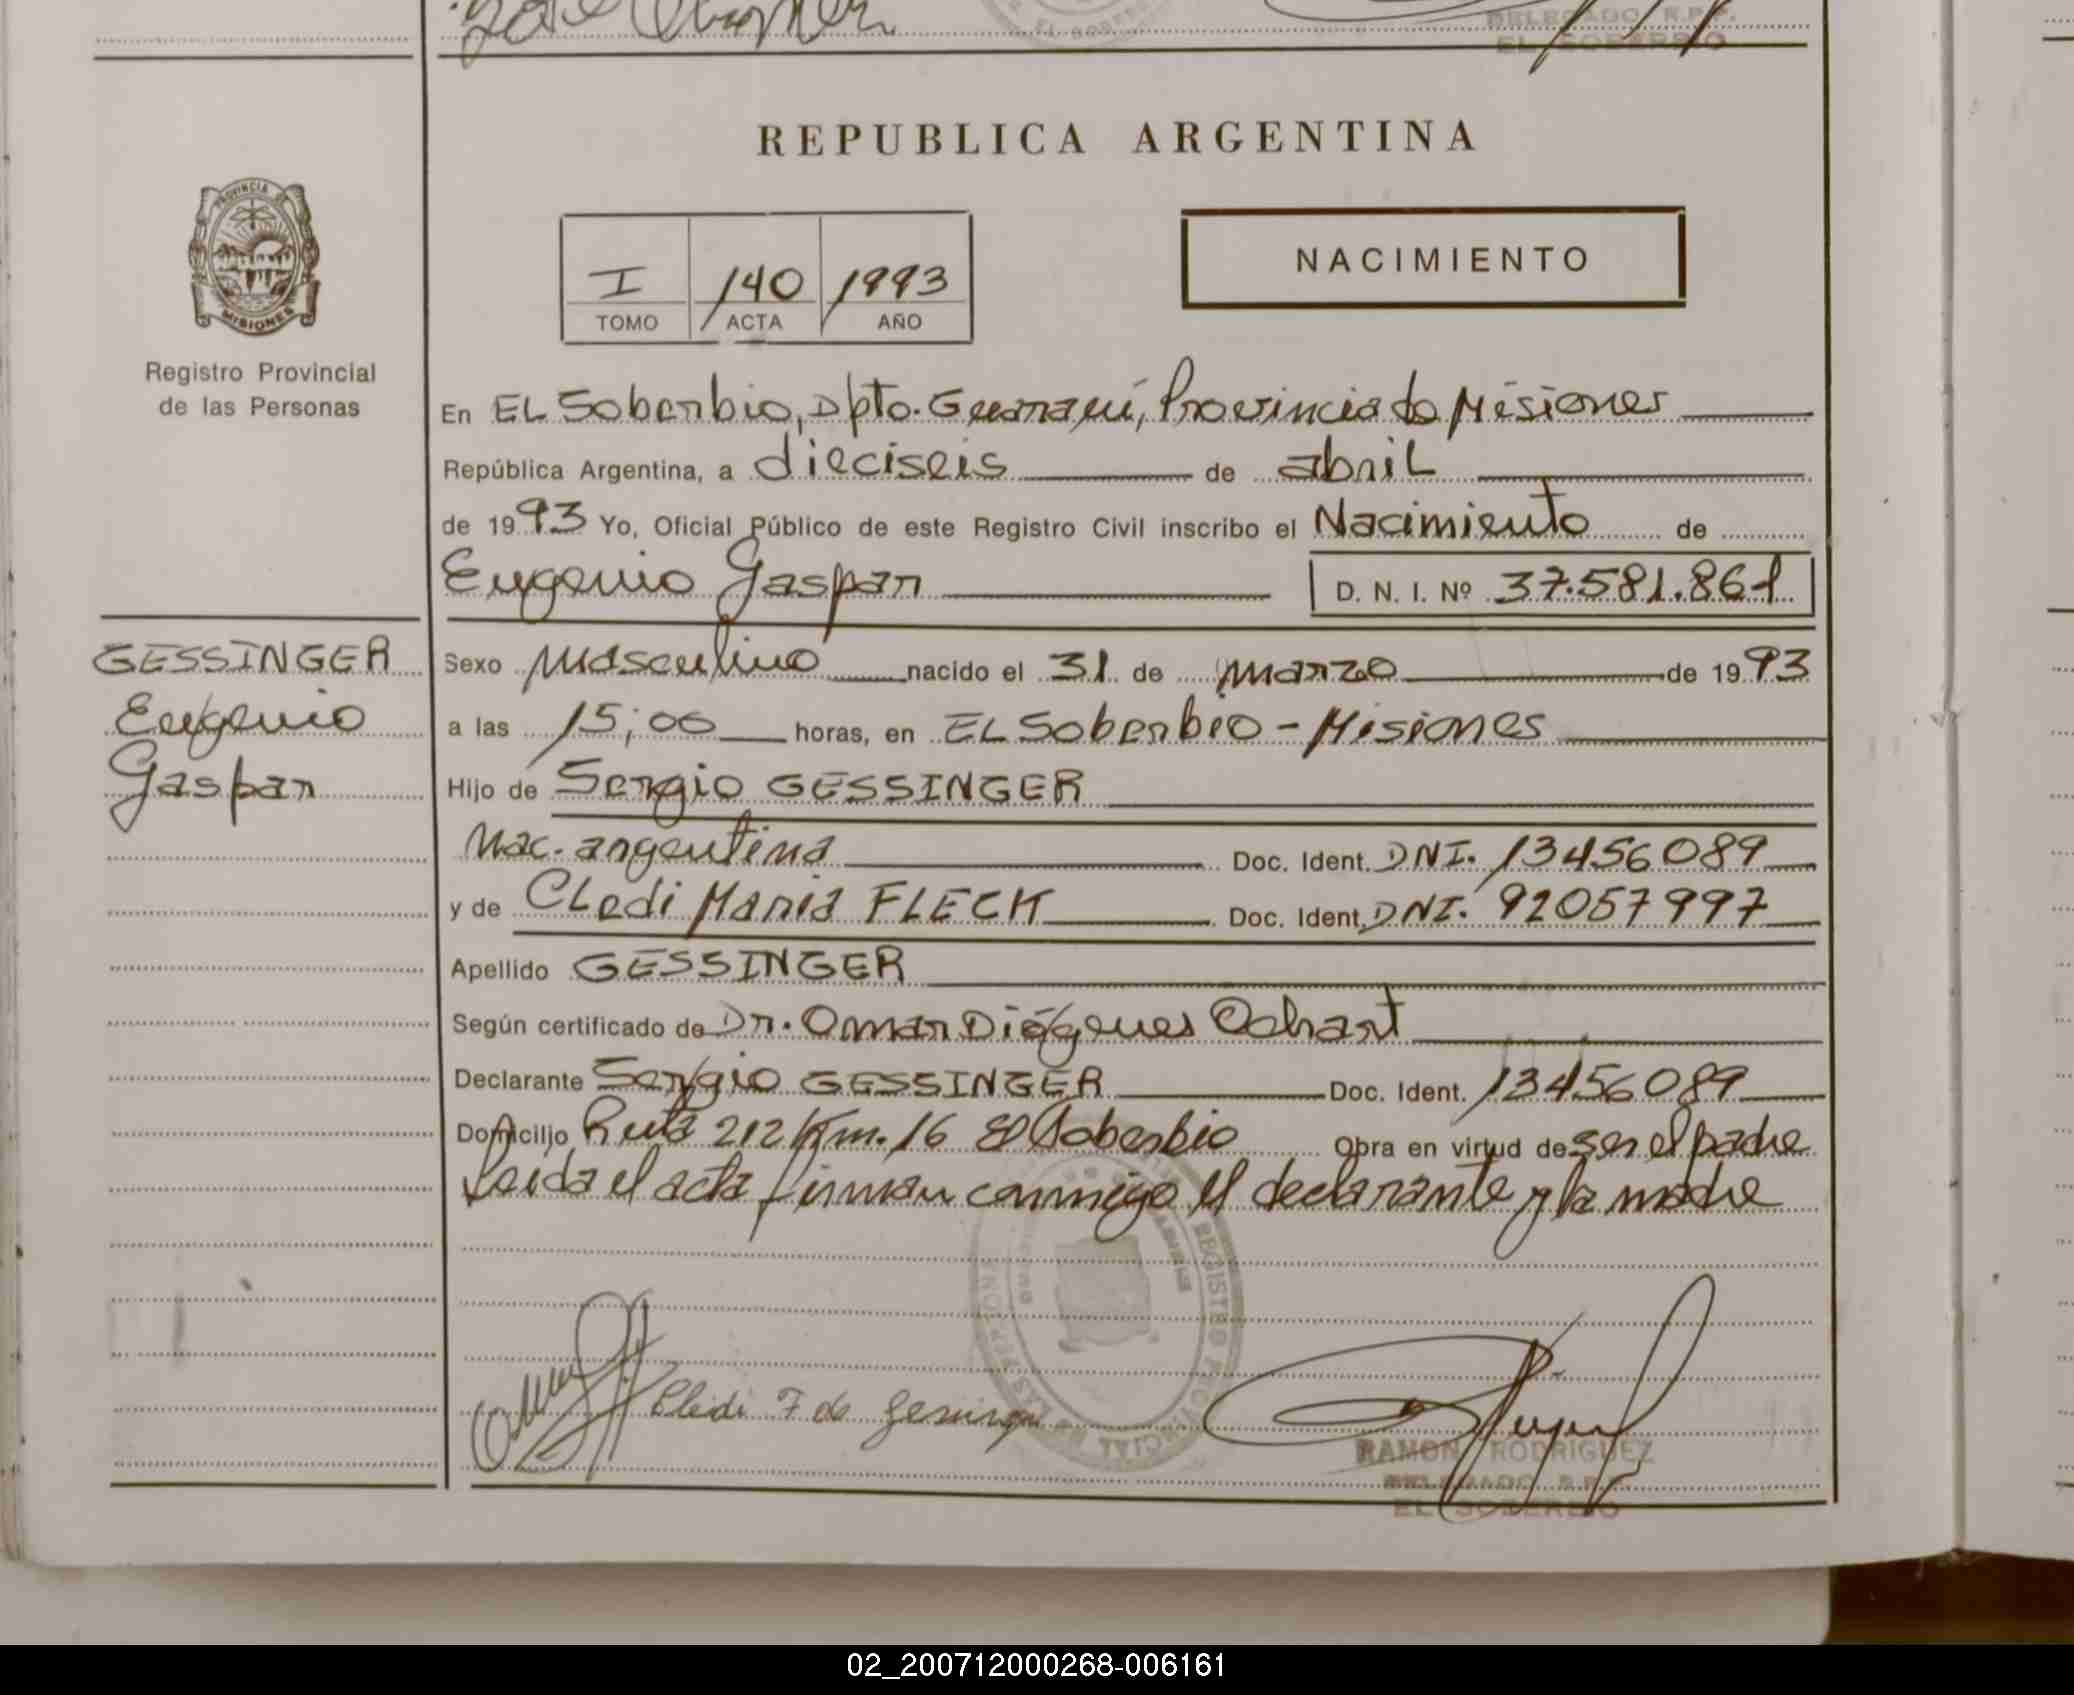 DELEGADO R.P.P.
EL SOBERBIO
REPUBLICA ARGENTINA
PROVINCIA DE
MISIONES
Registro Provincial
de las Personas
I 140 1993
TOMO ACTA AÑO
NACIMIENTO
En EL Soberbio, Dpto. Guaraní, Provincia de Misiones
República Argentina, a dieciseis de abriL
de 1993 Yo, Oficial Público de este Registro Civil inscribo el Nacimiento de
Eugenio Gaspar D. N. I. Nº 37.581.861
GESSINGER
Eugenio
Gaspar
Sexo Masculino nacido el 31 de marzo de 1993
a las 15;00 horas, en EL Soberbio - Misiones
Hijo de Sergio GESSINGER
Nac. argentina Doc. Ident. DNI. 13456089
y de CLedi Maria FLECK Doc. Ident. DNI. 92057997
Apellido GESSINGER
Según certificado de Dr. Omar Diógenes Ochart
Declarante Sergio GESSINGER Doc. Ident. 13456089
Domicilio Ruta 212 Km. 16 El Soberbio Obra en virtud de ser el padre
Leida el acta firman conmigo el declarante y la madre
Cledi F de Gessinger
RAMON RODRIGUEZ
DELEGADO R.P.P.
EL SOBERBIO
02_200712000268-006161